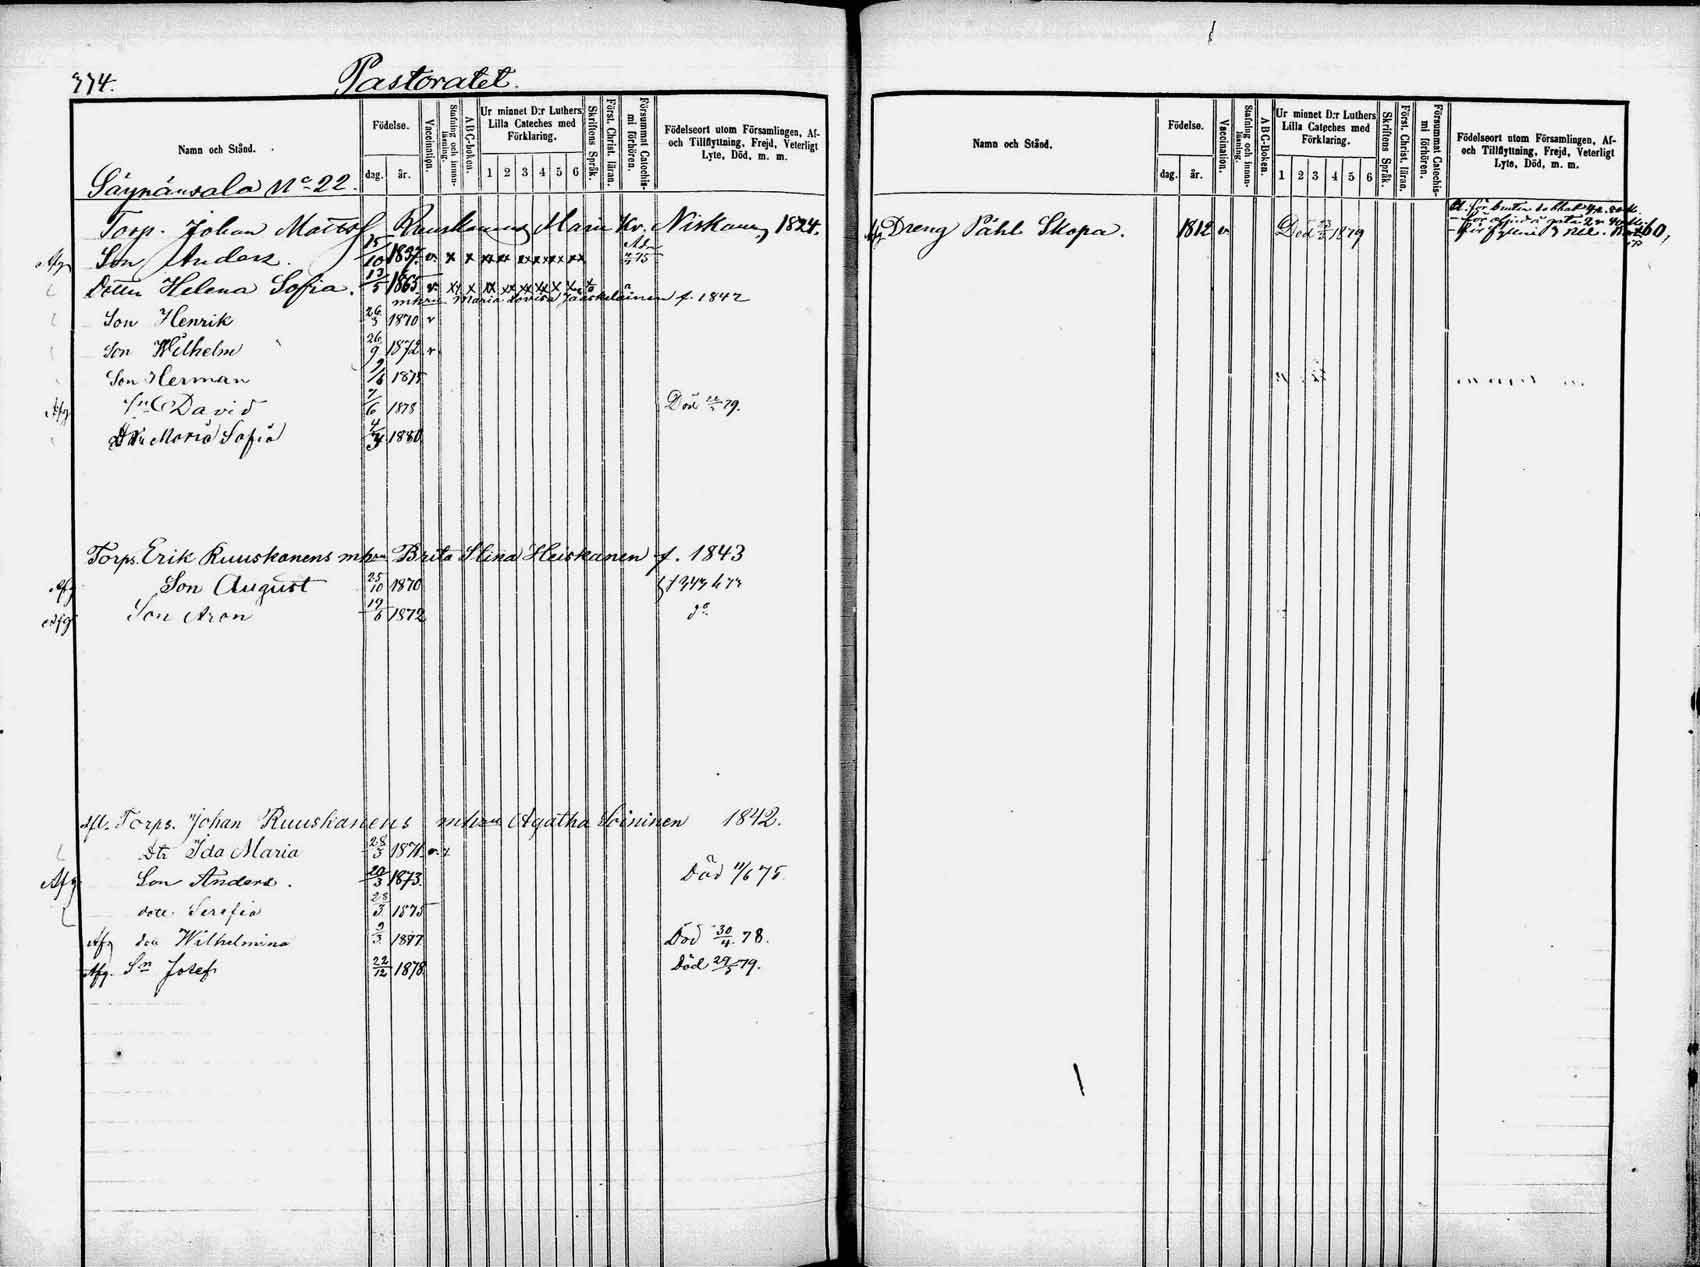 774.
Pastoratet.
Namn och Stånd.
Födelse.
dag.
år.
Vaccination.
Stafning och innanläsning.
ABC-boken.
Ur minnet D:r Luthers Lilla Cateches med Förklaring.
1 2 3 4 5 6
Skriftens Språk.
Först. Christ. läran.
Försummat Catechismi förhören.
Födelseort utom Församlingen, Af- och Tillflyttning, Frejd, Veterligt Lyte, Död, m. m.
Säynänsalo No 22.
Torp. Johan Matts Ruuskanens Maria Niskanen 1824.
Afg Son Anders. 15/10 1857. v x x
Dotter Helena Sofia. 13/5 1865 v
mhru Maria Lovisa Jääskeläinen f. 1842
Son Henrik 26/3 1870 v
Son Wilhelm 26/9 1872 v
Son Herman 1875
Afg Sn David 7/6 1878 Död 79.
Dtr Maria Sofia 4/3 1880
Torps. Erik Ruuskanens mhru Brita Stina Heiskanen f. 1843
Afg Son August 25/10 1870
Afg Son Aron 19/6 1872 do
Afl. Torps. Johan Ruuskanens mhru Agatha Soininen 1842.
Dtr Ida Maria 28/3 1871
Afg Son Anders. 20/3 1873. Död 11/6 75.
dott. Serefia 28/3 1875
Afg dott Wilhelmina 9/3 1877 Död 30/4 78.
Afg. Sn Josef 22/12 1878. Död 29/5 79.
Namn och Stånd.
Födelse.
dag.
år.
Vaccination.
Stafning och innanläsning.
ABC-Boken.
Ur minnet D:r Luthers Lilla Cateches med Förklaring.
1 2 3 4 5 6
Skriftens Språk.
Först. Christ. läran.
Försummat Catechismi förhören.
Födelseort utom Församlingen, Af- och Tillflyttning, Frejd, Veterligt Lyte, Död, m. m.
Afg Dreng Påhl Skopa. 1812 v Död 1879